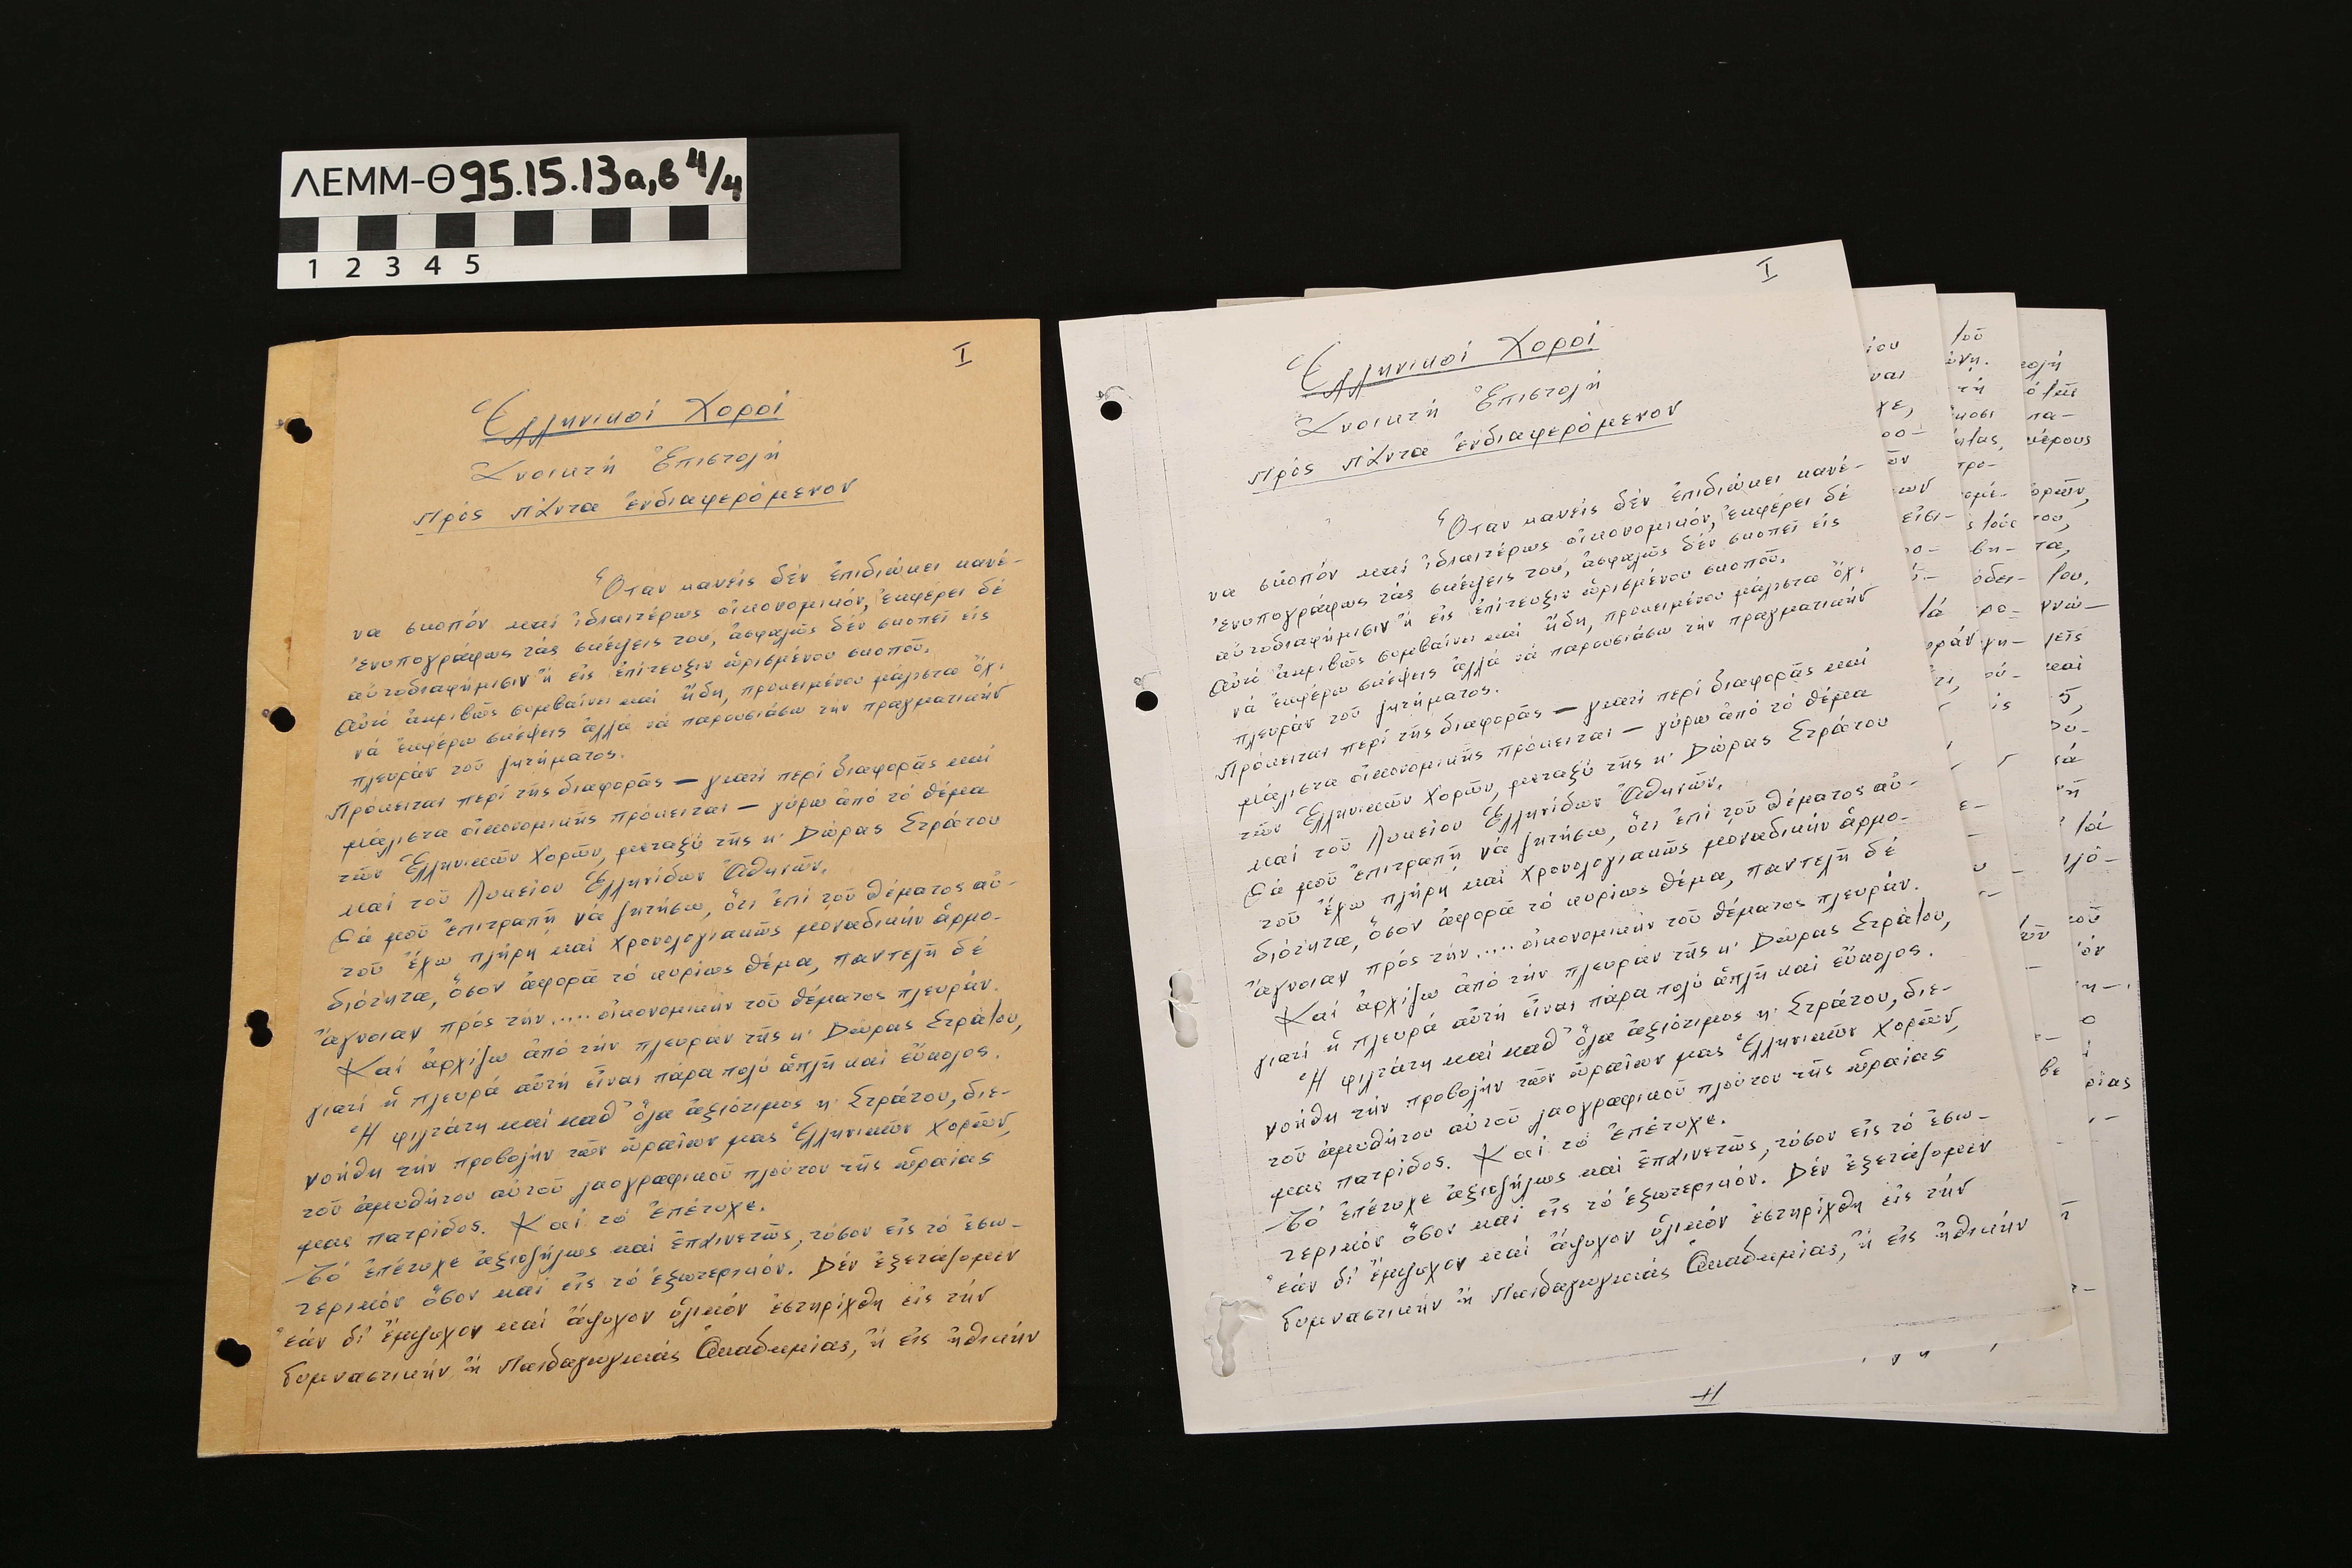 ΛΕΜΜ-Θ 95.15.13α,β 4/4
1 2 3 4 5
I
Ἑλληνικοί Χοροί
Ἀνοικτή Ἐπιστολή
Πρός πάντα ἐνδιαφερόμενον
Ὅταν κανείς δέν ἐπιδιώκει κανέ-
να σκοπόν καί ἰδιαιτέρως οἰκονομικόν, ἐκφέρει δέ
ἐνυπογράφως τάς σκέψεις του, ἀσφαλῶς δέν σκοπεῖ εἰς
αὐτοδιαφήμισιν ἤ εἰς ἐπίτευξιν ὡρισμένου σκοποῦ.
Αὐτό ἀκριβῶς συμβαίνει καί ἤδη, προκειμένου μάλιστα ὄχι
νά ἐκφέρω σκέψεις ἀλλά νά παρουσιάσω τήν πραγματικήν
πλευράν τοῦ ζητήματος.
Πρόκειται περί τῆς διαφορᾶς — γιατί περί διαφορᾶς καί
μάλιστα οἰκονομικῆς πρόκειται — γύρω ἀπό τό θέμα
τῶν Ἑλληνικῶν Χορῶν, μεταξύ τῆς κ' Δώρας Στράτου
καί τοῦ Λυκείου Ἑλληνίδων Ἀθηνῶν.
Θά μοῦ ἐπιτραπῆ νά ζητήσω, ὅτι ἐπί τοῦ θέματος αὐ-
τοῦ ἔχω πλήρη καί χρονολογιακῶς μοναδικήν ἁρμο-
διότητα, ὅσον ἀφορᾶ τό κυρίως θέμα, παντελῆ δέ
ἄγνοιαν πρός τήν ..... οἰκονομικήν τοῦ θέματος πλευράν.
Καί ἀρχίζω ἀπό τήν πλευράν τῆς κ' Δώρας Στράτου,
γιατί ἡ πλευρά αὐτή εἶναι πάρα πολύ ἁπλῆ καί εὔκολος.
Ἡ φιλτάτη καί καθ' ὅλα ἀξιότιμος κ' Στράτου, διε-
νοήθη τήν προβολήν τῶν ὡραίων μας Ἑλληνικῶν Χορῶν,
τοῦ ἀμυθήτου αὐτοῦ λαογραφικοῦ πλούτου τῆς ὡραίας
μας πατρίδος. Καί τό ἐπέτυχε.
Τό ἐπέτυχε ἀξιοζήλως καί ἐπαινετῶς, τόσον εἰς τό ἐσω-
τερικόν ὅσον καί εἰς τό ἐξωτερικόν. Δέν ἐξετάζομεν
ἐάν δι' ἔμψυχον καί ἄψυχον ὑλικόν ἐστηρίχθη εἰς τήν
Γυμναστικήν ἤ Παιδαγωγικάς Ἀκαδημίας, ἤ εἰς ἠθικήν
I
Ἑλληνικοί Χοροί
Ἀνοικτή Ἐπιστολή
Πρός πάντα ἐνδιαφερόμενον
Ὅταν κανείς δέν ἐπιδιώκει κανέ-
να σκοπόν καί ἰδιαιτέρως οἰκονομικόν, ἐκφέρει δέ
ἐνυπογράφως τάς σκέψεις του, ἀσφαλῶς δέν σκοπεῖ εἰς
αὐτοδιαφήμισιν ἤ εἰς ἐπίτευξιν ὡρισμένου σκοποῦ.
Αὐτό ἀκριβῶς συμβαίνει καί ἤδη, προκειμένου μάλιστα ὄχι
νά ἐκφέρω σκέψεις ἀλλά νά παρουσιάσω τήν πραγματικήν
πλευράν τοῦ ζητήματος.
Πρόκειται περί τῆς διαφορᾶς — γιατί περί διαφορᾶς καί
μάλιστα οἰκονομικῆς πρόκειται — γύρω ἀπό τό θέμα
τῶν Ἑλληνικῶν Χορῶν, μεταξύ τῆς κ' Δώρας Στράτου
καί τοῦ Λυκείου Ἑλληνίδων Ἀθηνῶν.
Θά μοῦ ἐπιτραπῆ νά ζητήσω, ὅτι ἐπί τοῦ θέματος αὐ-
τοῦ ἔχω πλήρη καί χρονολογιακῶς μοναδικήν ἁρμο-
διότητα, ὅσον ἀφορᾶ τό κυρίως θέμα, παντελῆ δέ
ἄγνοιαν πρός τήν ..... οἰκονομικήν τοῦ θέματος πλευράν.
Καί ἀρχίζω ἀπό τήν πλευράν τῆς κ' Δώρας Στράτου,
γιατί ἡ πλευρά αὐτή εἶναι πάρα πολύ ἁπλῆ καί εὔκολος.
Ἡ φιλτάτη καί καθ' ὅλα ἀξιότιμος κ' Στράτου, διε-
νοήθη τήν προβολήν τῶν ὡραίων μας Ἑλληνικῶν Χορῶν,
τοῦ ἀμυθήτου αὐτοῦ λαογραφικοῦ πλούτου τῆς ὡραίας
μας πατρίδος. Καί τό ἐπέτυχε.
Τό ἐπέτυχε ἀξιοζήλως καί ἐπαινετῶς, τόσον εἰς τό ἐσω-
τερικόν ὅσον καί εἰς τό ἐξωτερικόν. Δέν ἐξετάζομεν
ἐάν δι' ἔμψυχον καί ἄψυχον ὑλικόν ἐστηρίχθη εἰς τήν
Γυμναστικήν ἤ Παιδαγωγικάς Ἀκαδημίας, ἤ εἰς ἠθικήν